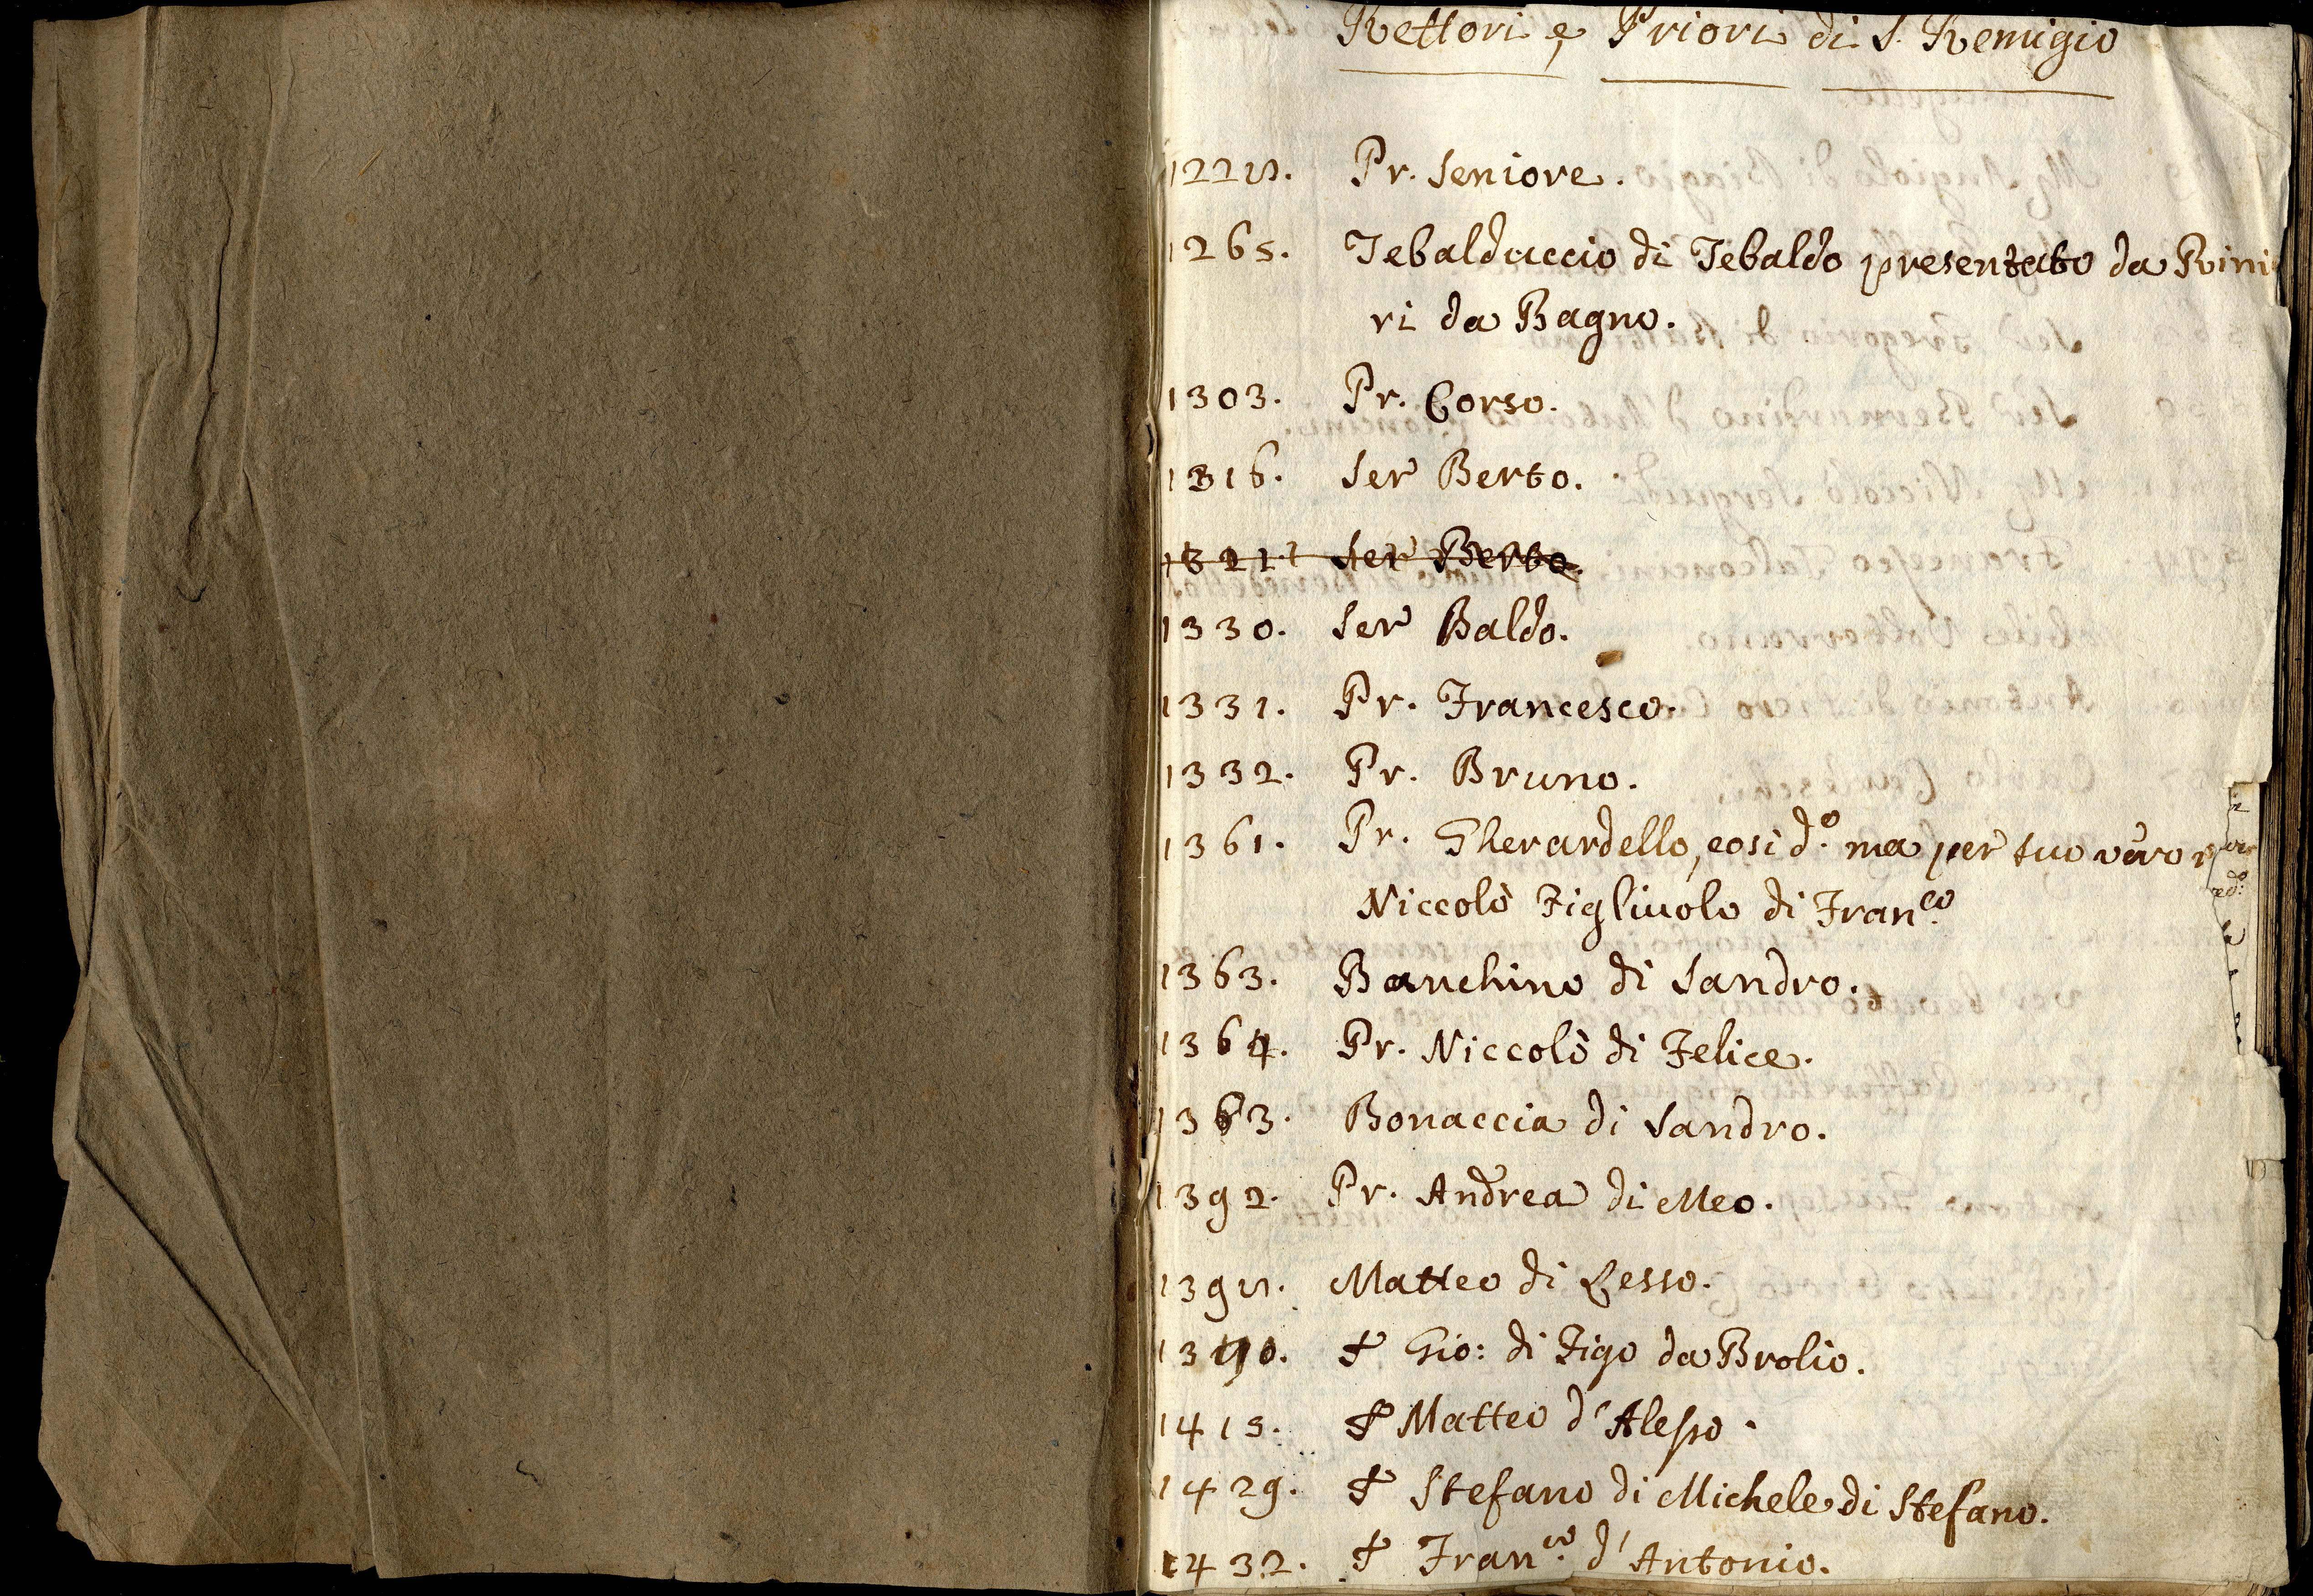 Rettori e Priori di S. Remigio
122 . Pr. Seniore.
1265. Tebalduccio di Tebaldo presentato da Rini
ri da Bagno.
1303. Pr. Corso.
1316. Ser Berto.
1321. Ser Berto.
1330. Ser Baldo.
1331. Pr. Francesco.
1332. Pr. Bruno.
1361. Pr. Gherardello, cosi d.º ma per suo vero
Niccolò Figliuolo di Fran.co
1363. Banchino di Sandro.
1364. Pr. Niccolò di Felice.
1363. Bonaccia di Sandro.
1392. Pr. Andrea di Meo.
139 . Matteo di Lesso.
1390. + Gio: di Figo da Brolio.
1415. + Matteo d'Alesso.
1429. + Stefano di Michele di Stefano.
1432. + Fran.co d'Antonio.